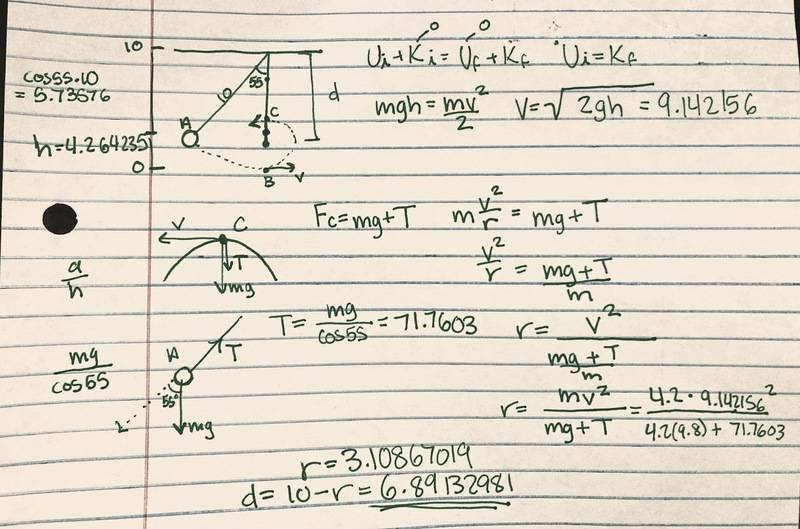 10
cos55.10
= 5.73576
h=4.264235
0
A
10
55
C
d
B
V
Ui+Ki=Uf+Kf Ui=Kf
0 0
mgh=mv²/2 V=√2gh = 9.142156
V C
T
mg
Fc=mg+T m v²/r = mg+T
v²/r = mg+T/m
a/h
T= mg/cos55 = 71.7603 r= V²/mg+T/m
mg/cos55
A
T
55°
mg
r= mv²/mg+T = 4.2·9.142156²/4.2(9.8)+71.7603
r=3.10867019
d=10-r=6.89132981